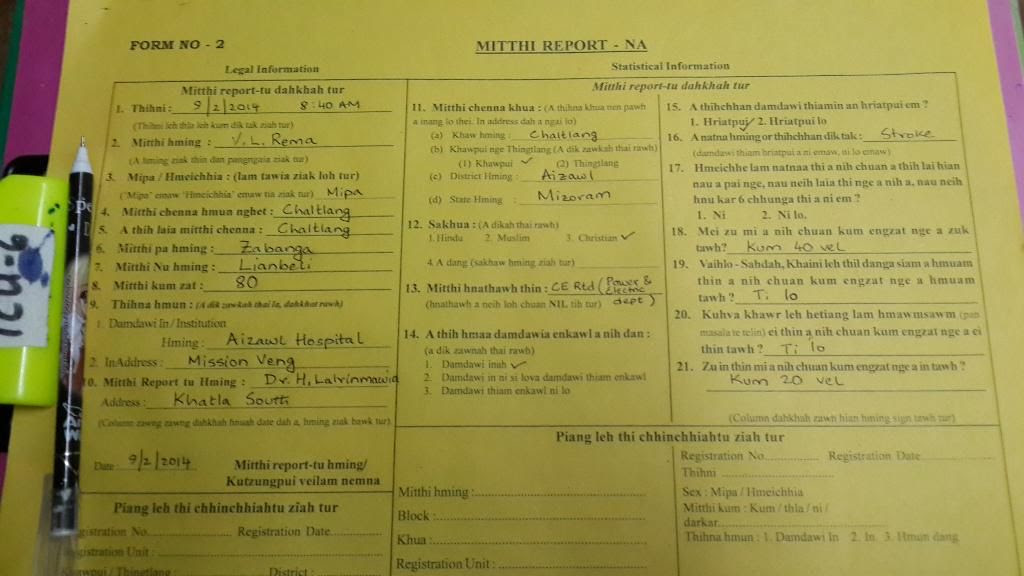 FORM NO - 2
MITTHI REPORT - NA
Legal Information
Statistical Information
Mitthi report-tu dahkhah tur
1. Thihni : 9/2/2014 8:40 AM
(Thihni leh thla leh kum dik tak ziah tur)
2. Mitthi hming : V. L. Rema
(A hming ziak thin dan pangngaia ziak tur)
3. Mipa / Hmeichhia : (lam tawia ziak loh tur)
('Mipa' emaw 'Hmeichhia' emaw tia ziak tur) Mipa
4. Mitthi chenna hmun nghet : Chaltlang
5. A thih laia mitthi chenna : Chaltlang
6. Mitthi pa hming : Zabanga
7. Mitthi Nu hming : Lianbeli
8. Mitthi kum zat : 80
9. Thihna hmun : (A dik zawkah thai la, dahkhat rawh)
1. Damdawi In / Institution
Hming : Aizawl Hospital
2. InAddress : Mission Veng
10. Mitthi Report tu Hming : Dr. H. Lalrinmawia
Address : Khatla South
(Column zawng zawng dahkhah hnuah date dah a, hming ziak hawk tur)
Date : 9/2/2014
Mitthi report-tu hming/
Kutzungpui veilam nemna
Mitthi report-tu dahkhah tur
11. Mitthi chenna khua : (A thihna khua nen pawh
a inang lo thei. In address dah a ngai lo)
(a) Khaw hming : Chaltlang
(b) Khawpui nge Thingtlang (A dik zawkah thai rawh)
(1) Khawpui ✓ (2) Thingtlang
(c) District Hming : Aizawl
(d) State Hming : Mizoram
12. Sakhua : (A dikah thai rawh)
1. Hindu 2. Muslim 3. Christian ✓
4. A dang (sakhaw hming ziah tur)
13. Mitthi hnathawh thin : CE Rtd (Power &
Electric
(hnathawh a neih loh chuan NIL tih tur) dept)
14. A thih hmaa damdawia enkawl a nih dan :
(a dik zawnah thai rawh)
1. Damdawi inah ✓
2. Damdawi in ni si lova damdawi thiam enkawl
3. Damdawi thiam enkawl ni lo
15. A thihchhan damdawi thiamin an hriatpui em ?
1. Hriatpui ✓ 2. Hriatpui lo
16. A natna hming or thihchhan dik tak : Stroke
(damdawi thiam hriatpui a ni emaw, ni lo emaw)
17. Hmeichhe lam natnaa thi a nih chuan a thih lai hian
nau a pai nge, nau neih laia thi nge a nih a, nau neih
hnu kar 6 chhunga thi a ni em ?
1. Ni 2. Ni lo.
18. Mei zu mi a nih chuan kum engzat nge a zuk
tawh? Kum 40 vel
19. Vaihlo - Sahdah, Khaini leh thil danga siam a hmuam
thin a nih chuan kum engzat nge a hmuam
tawh ? Ti lo
20. Kuhva khawr leh hetiang lam hmawmsawm (pan
masala te telin) ei thin a nih chuan kum engzat nge a ei
thin tawh ? Ti lo
21. Zu in thin mi a nih chuan kum engzat nge a in tawh ?
Kum 20 vel
(Column dahkhah zawh hian hming sign tawh tur)
Piang leh thi chhinchhiahtu ziah tur
Registration No. Registration Date
Registration Unit :
Khawpui / Thingtlang : District :
Piang leh thi chhinchhiahtu ziah tur
Mitthi hming :
Block :
Khua :
Registration Unit :
Registration No. Registration Date
Thihni
Sex : Mipa / Hmeichhia
Mitthi kum : Kum / thla / ni /
darkar
Thihna hmun : 1. Damdawi In 2. In. 3. Hmun dang
ICU-6